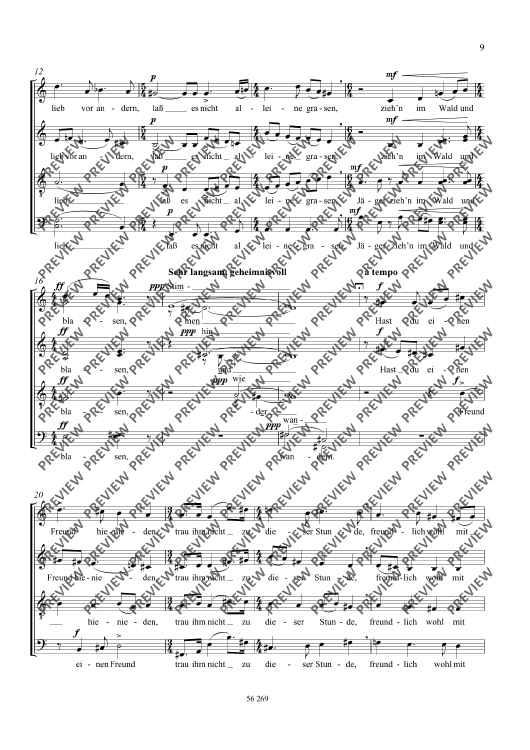 9
12
p
mf
lieb vor an - dern, laß es nicht al - lei - ne gra - sen, zieh'n im Wald und
p
mf
lieb vor an - dern, laß es nicht al - lei - ne gra - sen, zieh'n im Wald und
p
mf
lieb laß es nicht al - lei - ne gra - sen, Jä - ger zieh'n im Wald und
p
mf
lieb laß es nicht al - lei - ne gra - sen, Jä - ger zieh'n im Wald und
Sehr langsam, geheimnisvoll a tempo
16
ff ppp Stim - f
bla - sen, men Hast du ei - nen
ff ppp hin f
bla - sen, und Hast du ei - nen
ff ppp wie f
bla - sen, - der - Freund
ff ppp wan -
bla - sen, wan - dern.
20
Freund hie - nie - den, trau ihm nicht zu die - ser Stun - de, freund - lich wohl mit
Freund hie - nie - den, trau ihm nicht zu die - ser Stun - de, freund - lich wohl mit
hie - nie - den, trau ihm nicht zu die - ser Stun - de, freund - lich wohl mit
f
ei - nen Freund trau ihm nicht zu die - ser Stun - de, freund - lich wohl mit
56 269
PREVIEW